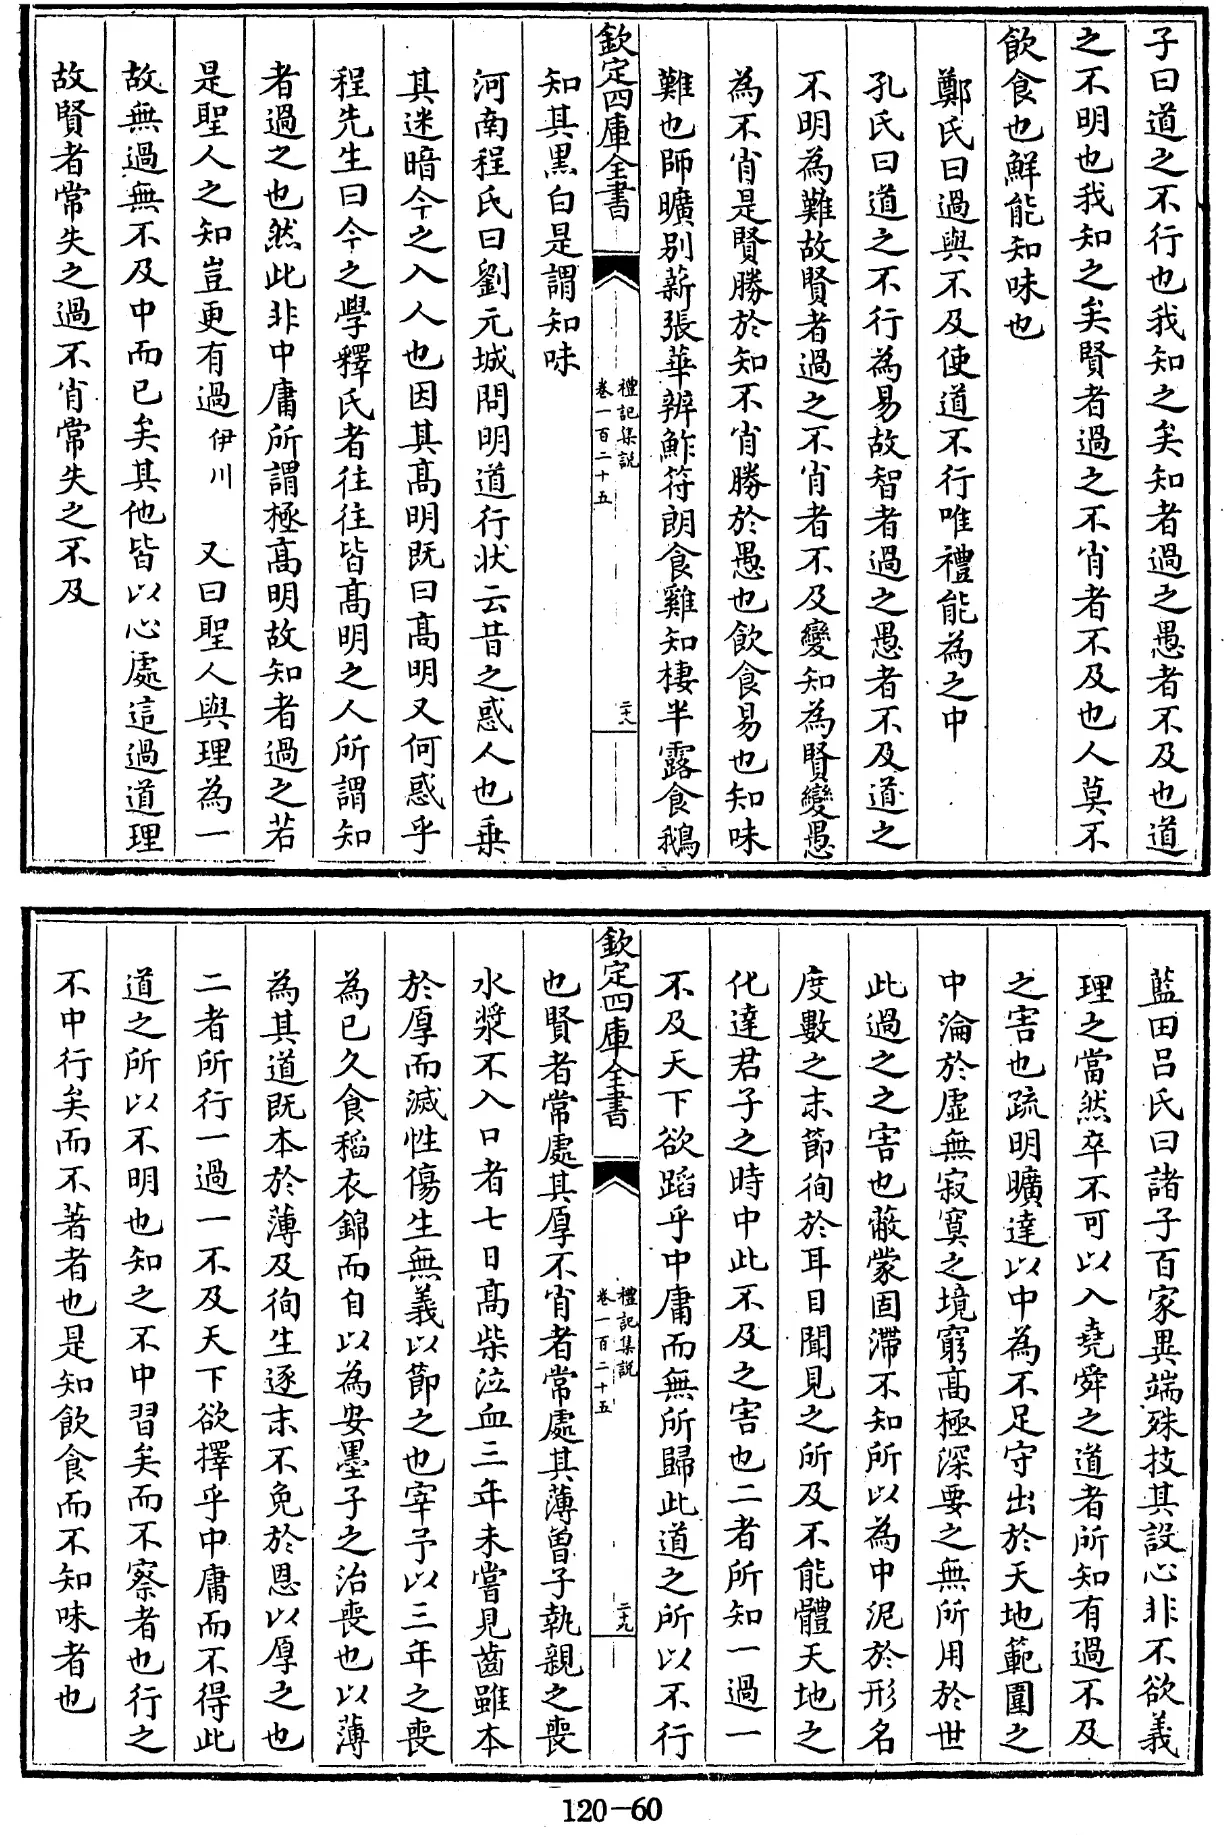 子曰道之不行也我知之矣知者過之愚者不及也道
之不明也我知之矣賢者過之不肖者不及也人莫不
飲食也鮮能知味也
鄭氏曰過與不及使道不行唯禮能為之中
孔氏曰道之不行為易故智者過之愚者不及道之
不明為難故賢者過之不肖者不及變知為賢變愚
為不肖是賢勝於知不肖勝於愚也飲食易也知味
難也師曠別薪張華辨鮓符朗食雞知棲半露食鵝
欽定四庫全書
禮記集說
卷一百二十五
二十八
知其黑白是謂知味
河南程氏曰劉元城問明道行狀云昔之惑人也乗
其迷暗今之入人也因其髙明既曰髙明又何惑乎
程先生曰今之學釋氏者往往皆髙明之人所謂知
者過之也然此非中庸所謂極髙明故知者過之若
是聖人之知豈更有過伊川 又曰聖人與理為一
故無過無不及中而已矣其他皆以心處這過道理
故賢者常失之過不肖常失之不及
藍田呂氏曰諸子百家異端殊技其設心非不欲義
理之當然卒不可以入堯舜之道者所知有過不及
之害也疏明曠達以中為不足守出於天地範圍之
中淪於虛無寂寞之境窮髙極深要之無所用於世
此過之之害也蔽蒙固滯不知所以為中泥於形名
度數之末節徇於耳目聞見之所及不能體天地之
化達君子之時中此不及之害也二者所知一過一
不及天下欲蹈乎中庸而無所歸此道之所以不行
欽定四庫全書
禮記集說
卷一百二十五
二十九
也賢者常處其厚不肖者常處其薄曾子執親之喪
水漿不入口者七日髙柴泣血三年未嘗見齒雖本
於厚而滅性傷生無義以節之也宰予以三年之喪
為已久食稻衣錦而自以為安墨子之治喪也以薄
為其道既本於薄及徇生逐末不免於恩以厚之也
二者所行一過一不及天下欲擇乎中庸而不得此
道之所以不明也知之不中習矣而不察者也行之
不中行矣而不著者也是知飲食而不知味者也
120-60